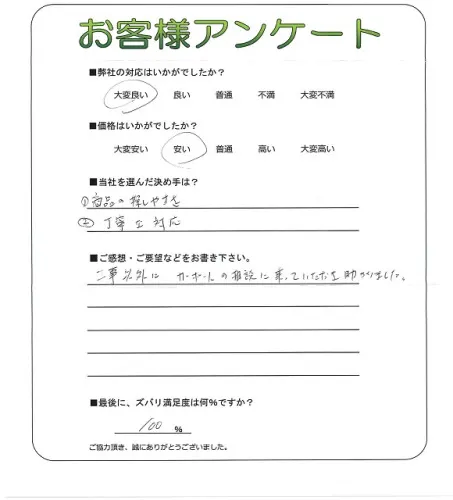 お客様アンケート
■弊社の対応はいかがでしたか?
大変良い 良い 普通 不満 大変不満
■価格はいかがでしたか?
大変安い 安い 普通 高い 大変高い
■当社を選んだ決め手は?
①商品の探しやすさ
② 丁寧な対応
■ご感想・ご要望などをお書き下さい。
工事以外に カーポートの相談に乗っていただき助かりました。
■最後に、ズバリ満足度は何%ですか?
100 %
ご協力頂き、誠にありがとうございました。